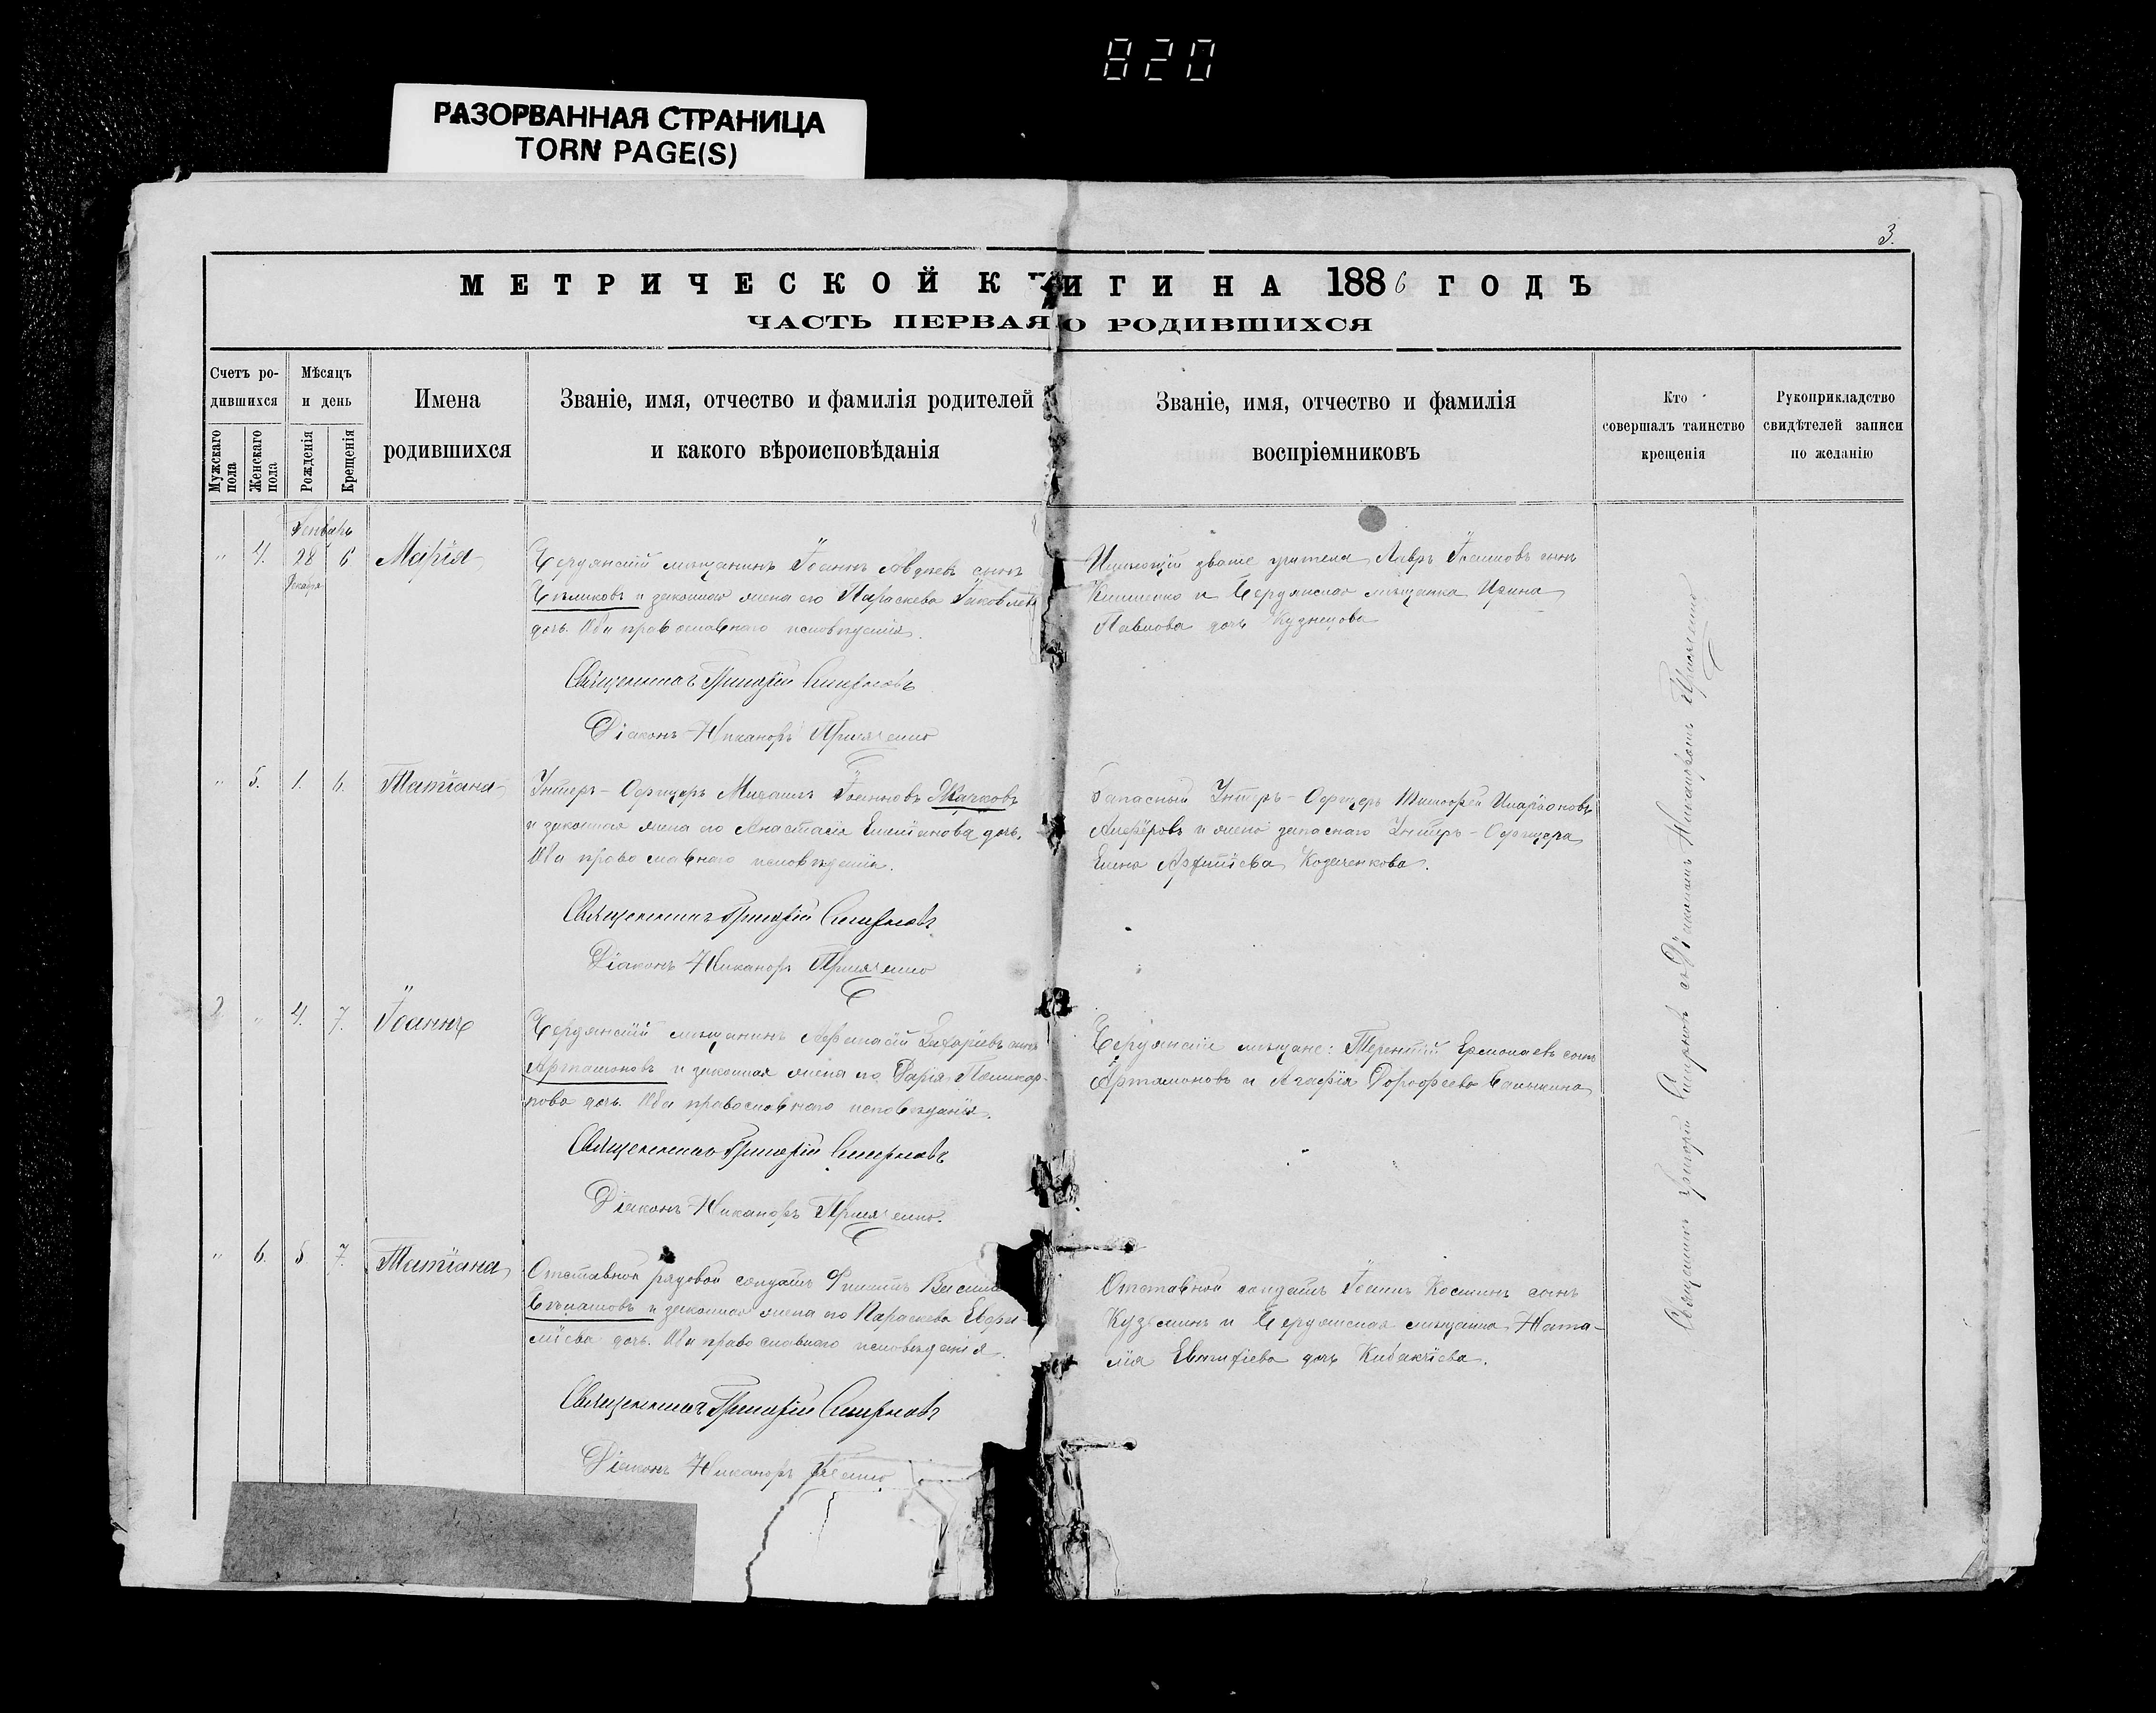 820
РАЗОРВАННАЯ СТРАНИЦА
TORN PAGE(S)
3.
МЕТРИЧЕСКОЙ КНИГИ НА 1886 ГОДЪ
ЧАСТЬ ПЕРВАЯ О РОДИВШИХСЯ
Счетъ ро-
дившихся
Мужскаго пола
Женскаго пола
Мѣсяцъ
и день
Рожденія
Крещенія
Имена
родившихся
Званіе, имя, отчество и фамилія родителей
и какого вѣроисповѣданія
Званіе, имя, отчество и фамилія
воспріемниковъ
Кто
совершалъ таинство
крещенія
Рукоприкладство
свидѣтелей записи
по желанію
Январь
" 4. 28 6 Марія
Декабря
Бердянскій мѣщанинъ Іоаннъ Авдѣевъ сынъ
и законная жена его Параскева Іаковлева
дочь. Оба православнаго исповѣданія.
Имѣющій званіе учителя Лавръ сынъ
и Бердянская мѣщанка Ирина
Павлова дочь Кузнецова
Священникъ Григорій Смирновъ
Діаконъ Никаноръ
" 5. 1. 6. Татіана
Унтеръ-Офицеръ Михаилъ Іоанновъ
и законная жена его Анастасія дочь.
Оба православнаго исповѣданія.
Запасный Унтеръ-Офицеръ Тимофей Иларіоновъ
и жена запаснаго Унтеръ-Офицера
Елена Козаченкова.
Священникъ Григорій Смирновъ
Діаконъ Никаноръ
2 " 4. 7. Іоаннъ
Бердянскій мѣщанинъ Афанасій Захаріевъ сынъ
Артамоновъ и законная жена его Дарія Поликар-
пова дочь. Оба православнаго исповѣданія.
Бердянскіе мѣщане: Терентій Ермолаевъ сынъ
Артамоновъ и Агафія Дорофеева
Священникъ Григорій Смирновъ
Діаконъ Никаноръ
" 6. 5 7. Татіана
Отставной рядовой солдатъ Филиппъ
и законная жена его Параскева Евфи-
міева дочь. Оба православнаго исповѣданія.
Отставной солдатъ Іоаннъ Косминъ сынъ
Кузьминъ и Бердянская мѣщанка Ната-
лія дочь
Священникъ Григорій Смирновъ
Діаконъ Никаноръ
Священникъ Григорій Смирновъ съ Діакономъ Никаноромъ